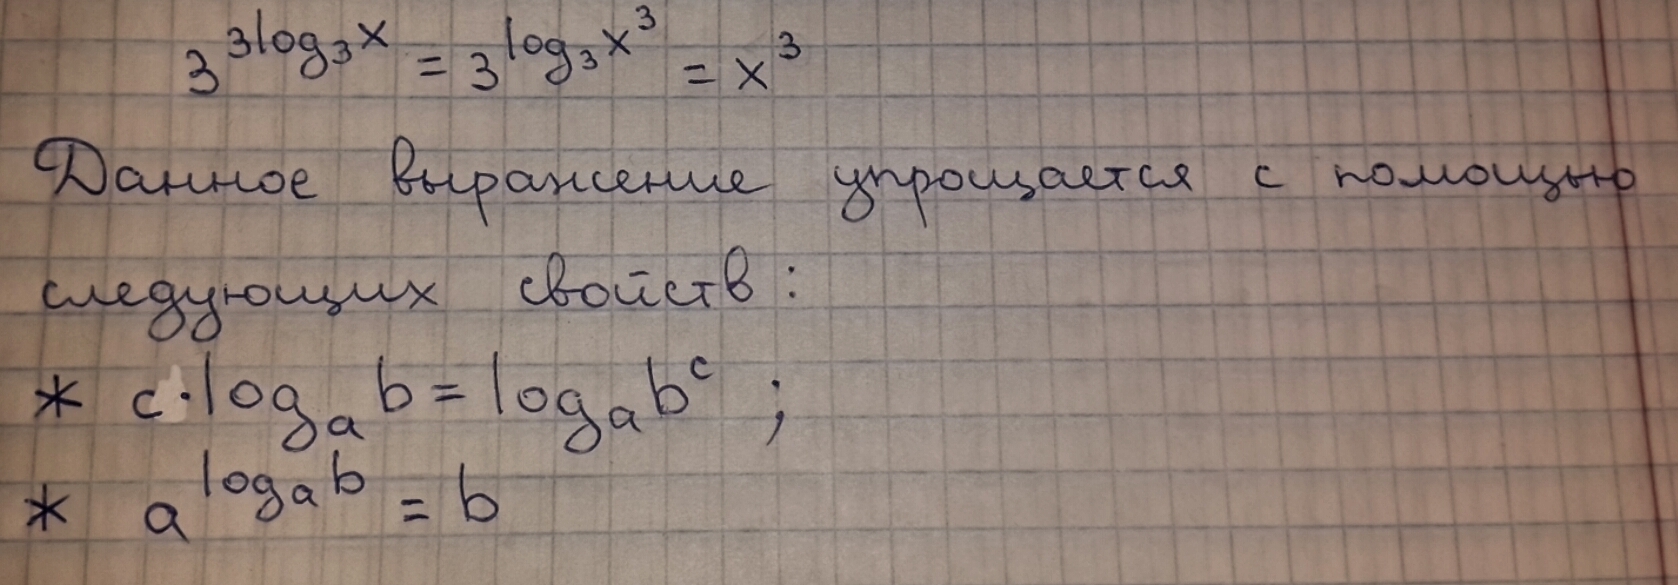 3^{3log_3 x} = 3^{log_3 x^3} = x^3
Данное выражение упрощается с помощью
следующих свойств:
* c·log_a b = log_a b^c ;
* a^{log_a b} = b